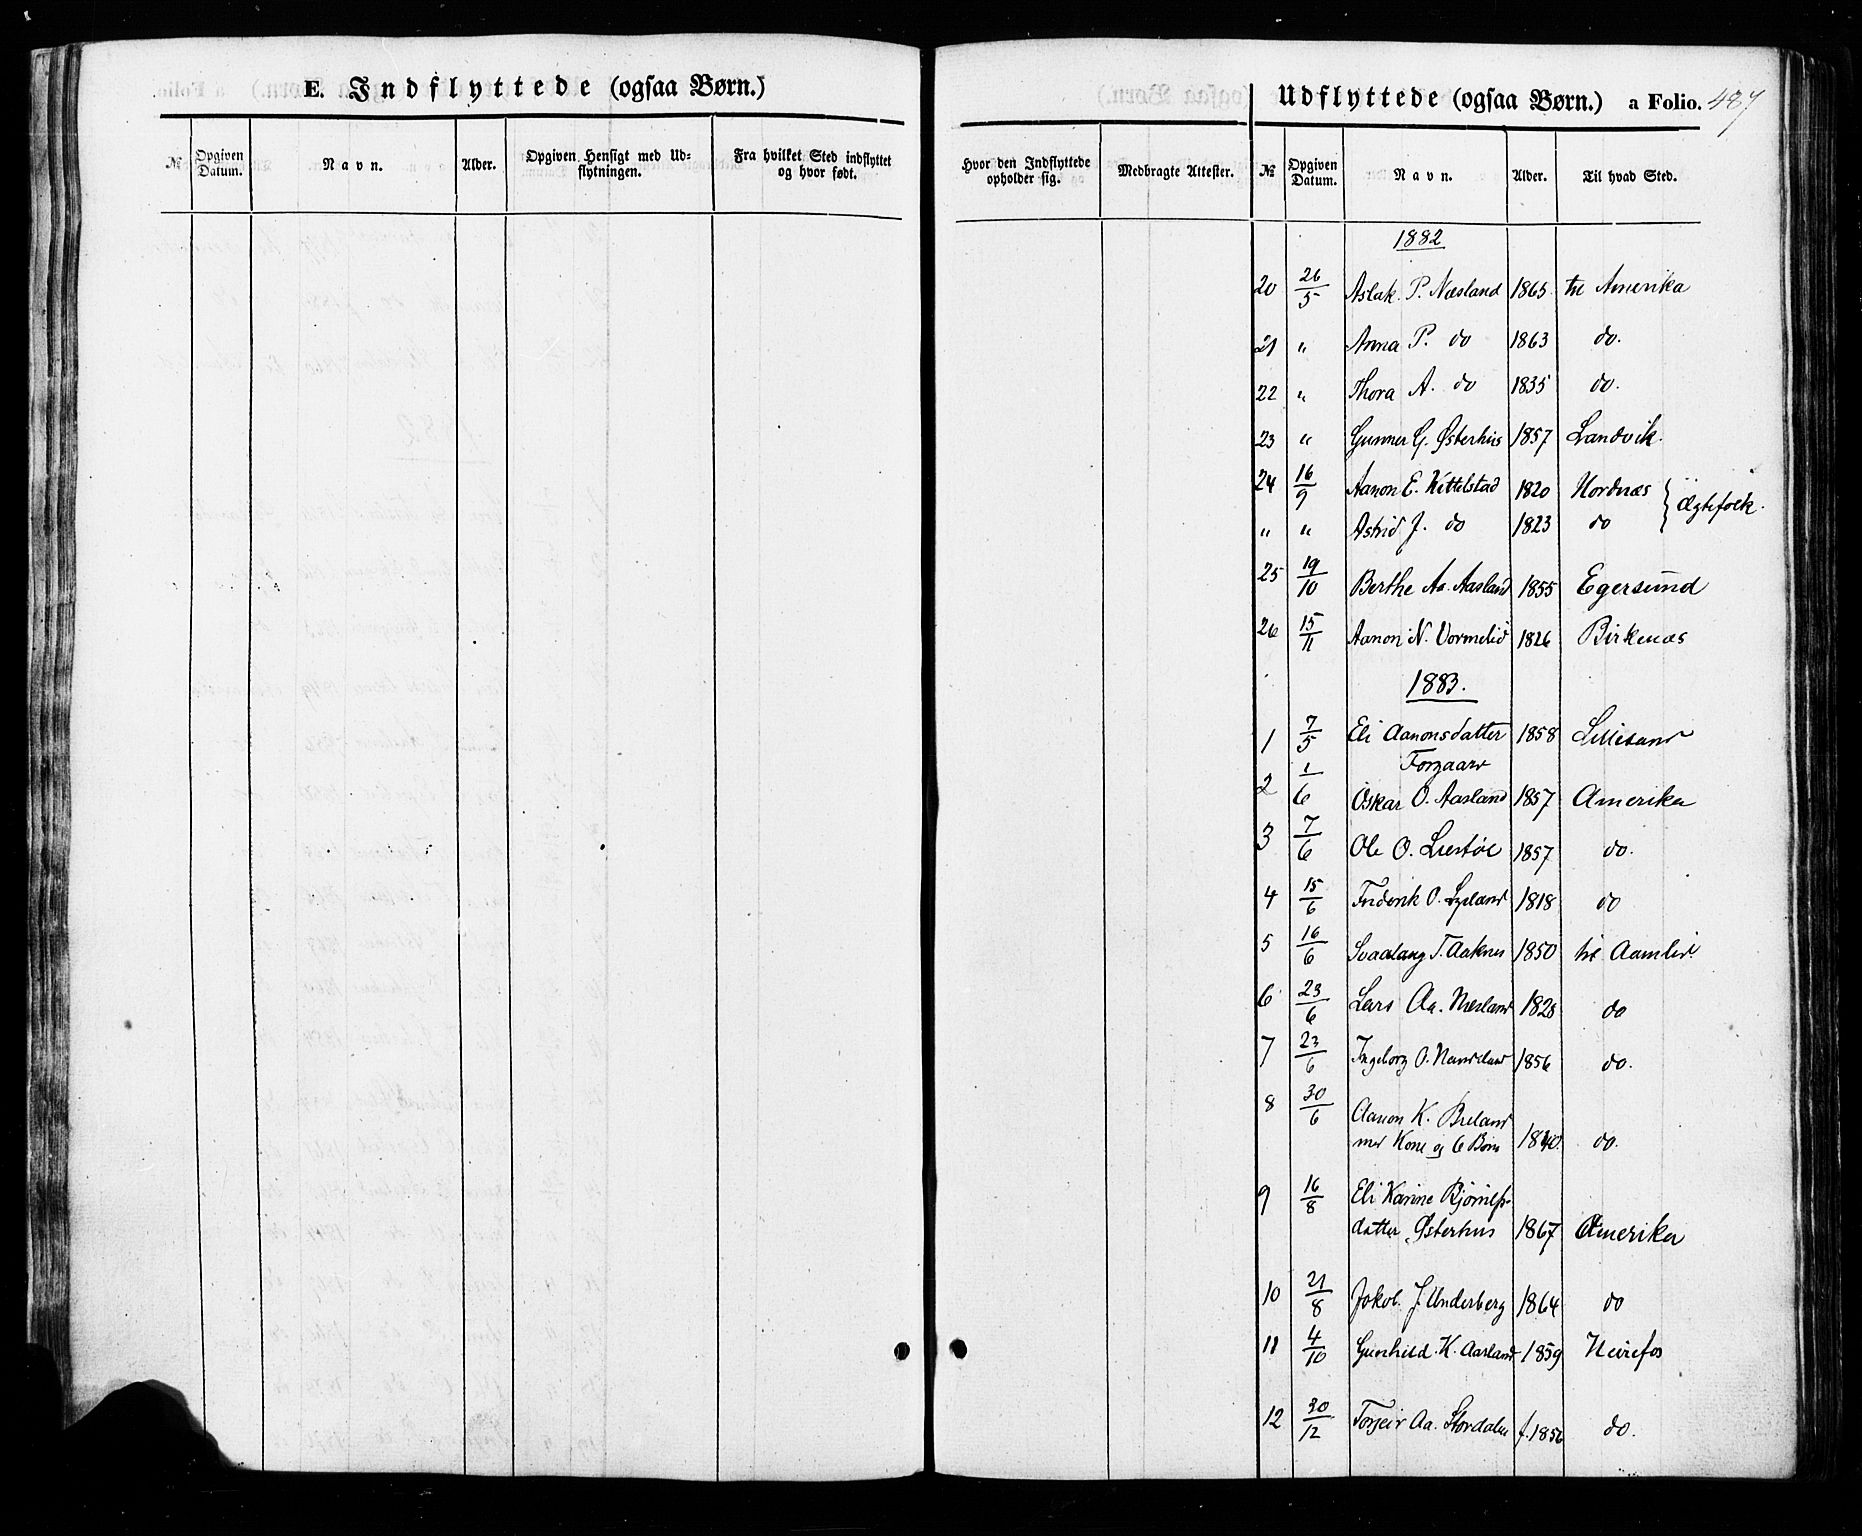 E. Indflyttede (ogsaa Børn.)
№ Opgiven Datum. Navn. Alder. Opgiven Hensigt med Udflytningen. Fra hvilket Sted indflyttet og hvor født.
Udflyttede (ogsaa Børn.) a Folio. 487
Hvor den Indflyttede opholder sig. Medbragte Attester. № Opgiven Datum. Navn. Alder. Til hvad Sted.
1882
20 26/5 Aslak. P. Næsland 1865 til Amerika
21 " Anna P. do 1863 do.
22 " Thora A. do 1835 do.
23 " Gunner G. Østerhus 1857 Landvik.
24 16/9 Aanon E. Kittelstad 1820 Hordnæs } Ægtefolk.
" " Astrid J. do 1823 do
25 19/10 Berthe Aa. Aasland 1855 Egersund
26 15/11 Aanon N. Vormelid 1826 Birkenæs
1883.
1 7/5 Eli Aanonsdatter 1858 Lillesand
Torgaard
2 1/6 Oskar O. Aasland 1857 Amerika
3 7/6 Ole O. 1857 do.
4 15/6 Frederik O. 1818 do
5 16/6 T. Aaknes 1850 til Aamlid
6 23/6 Lars Aa. Næsland do
7 23/6 Ingeborg O. 1856 do.
8 30/6 Aanon K. Breland
med Kone og 6 Børn 1840. do.
9 16/8 Eli Karine
datter Østerhus 1867 Amerika
10 21/8 Jakob. J. Underberg 1864 do
11 4/10 Gunhild. K. Aasland 1859
12 30/12 Torjeir Aa. Stordalen f. 1856 do.